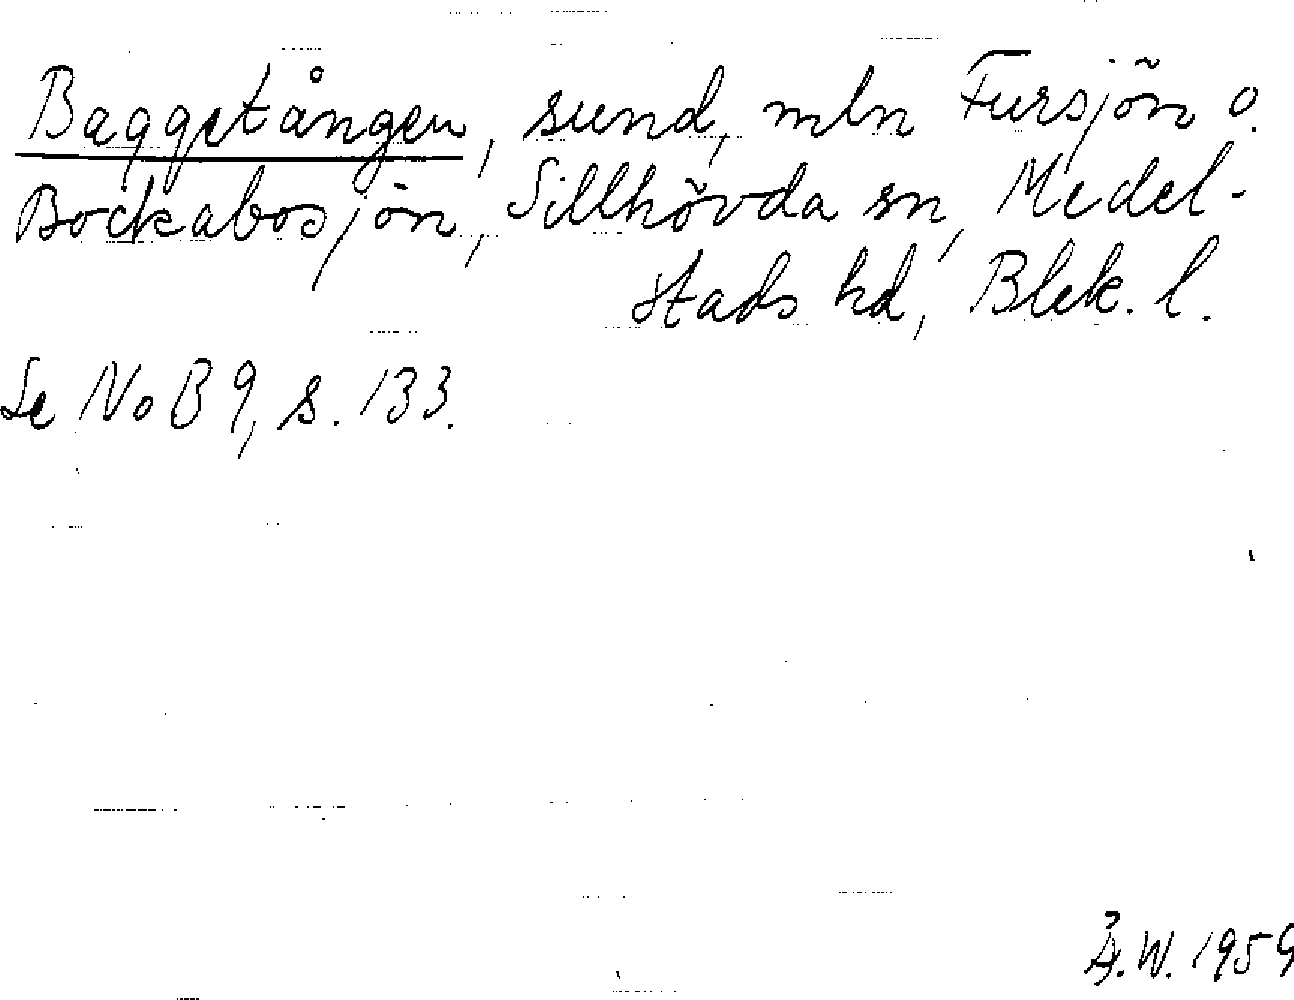 Baggetången, sund, mln Fursjön o.
Bockabosjön, Sillhövda sn, Medel-
stads hd, Blek. l.
Se NoB 9, s. 133.
Å.W. 1959